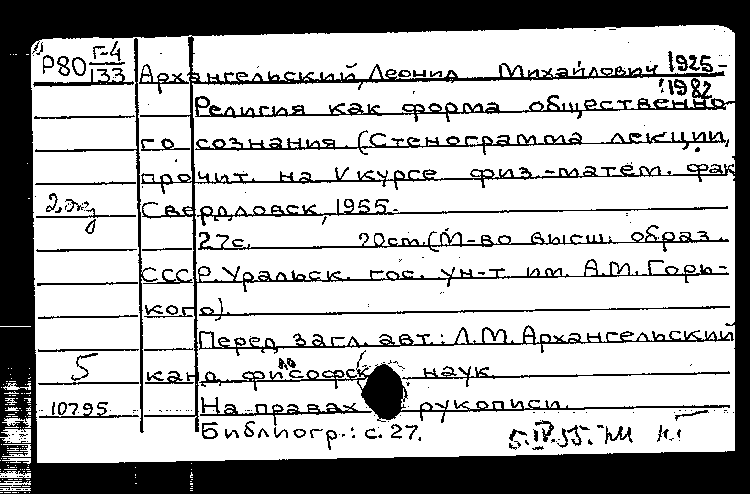 Р80 Г-4
133
Архангельский, Леонид Михайлович 1925-
1982
Религия как форма общественно-
го сознания. (Стенограмма лекции,
прочит. на V курсе физ.-матем. фак.
2 экз
Свердловск, 1955.
27с. 20см. (М-во высш. образ.
СССР. Уральск. гос. ун-т им. А.М. Горь-
кого).
Перед загл. авт.: Л.М. Архангельский
5 канд. философск. наук.
10795 На правах рукописи.
Библиогр.: с. 27.
5.IV.55.